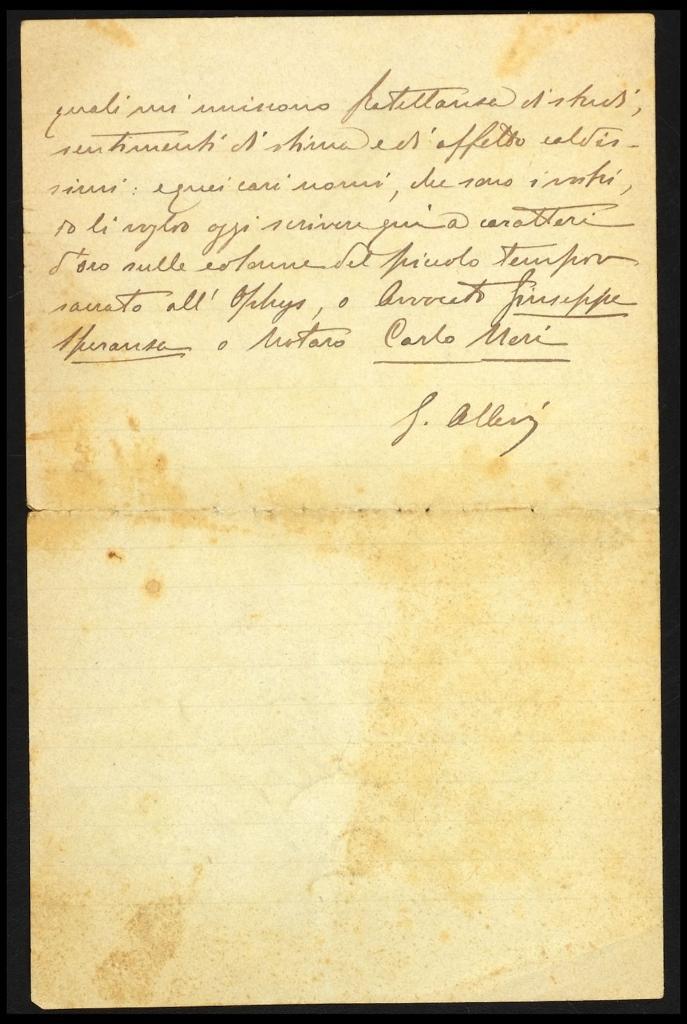 quali mi uniscono fratellansa di studi,
sentimenti di stima e di affetto caldis-
simi: e quei cari nomi, che sono i vostri,
io li voglio oggi scrivere quì a caratteri
d'oro sulle colonne del piccolo tempio
sacrato all' Ophys, o Avvocato Giuseppe
Speransa o Notaro Carlo Neri
G. Allevi